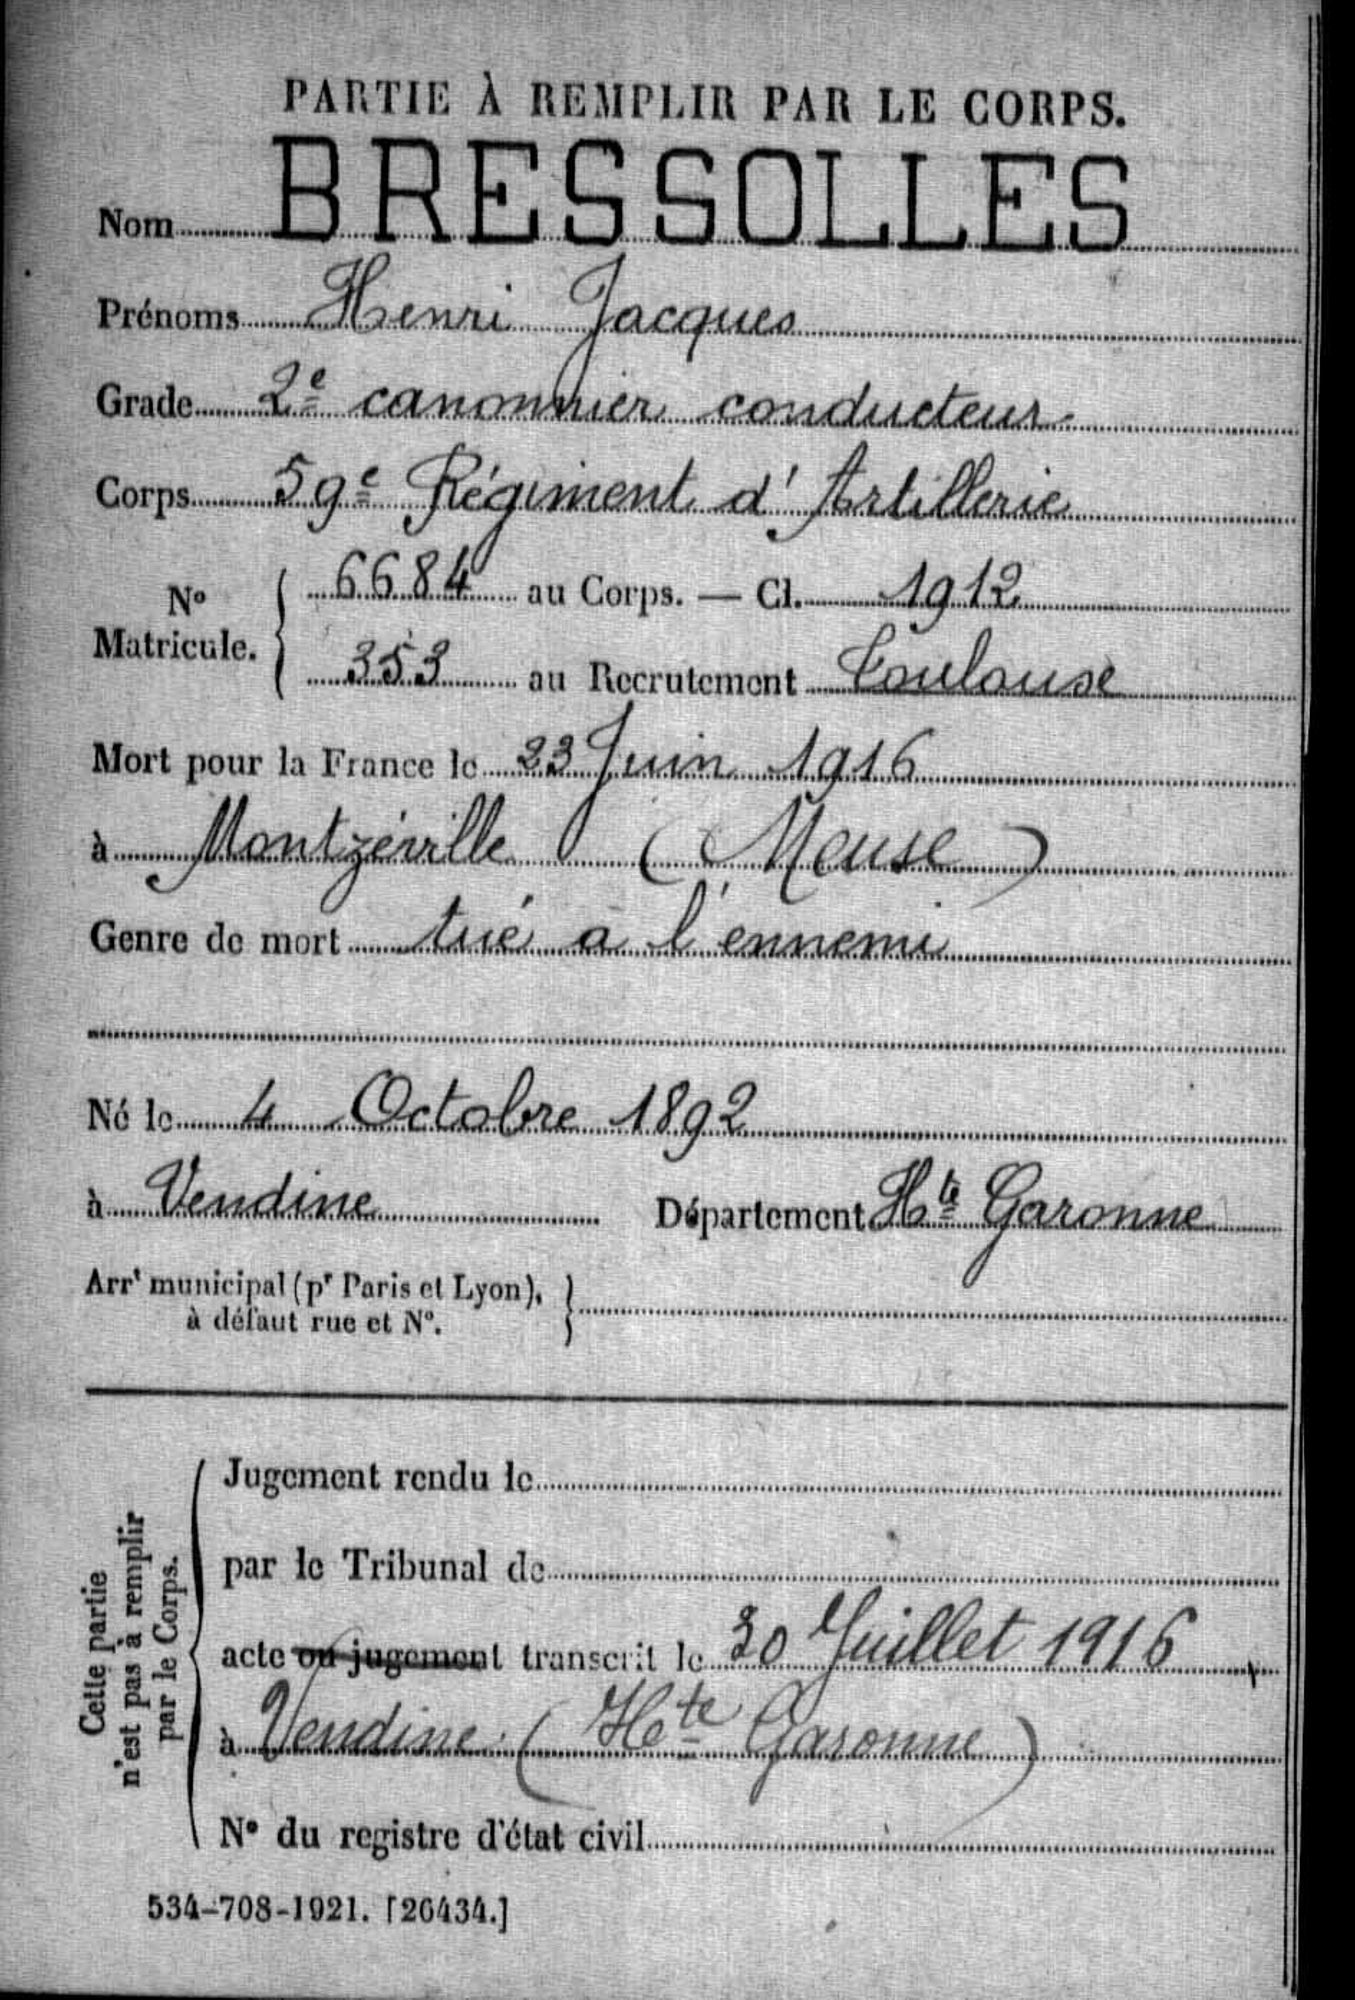 PARTIE À REMPLIR PAR LE CORPS.
Nom BRESSOLLES
Prénoms Henri Jacques
Grade 2e canonnier conducteur
Corps 59e Régiment d'Artillerie
No Matricule. { 6684 au Corps. — Cl. 1912
353 au Recrutement Toulouse
Mort pour la France le 23 Juin 1916
à Montzéville (Meuse)
Genre de mort tué à l'ennemi
Né le 4 Octobre 1892
à Vendine Département Hte Garonne
Arrt municipal (pr Paris et Lyon),
à défaut rue et No.
Cette partie
n'est pas à remplir
par le Corps.
Jugement rendu le
par le Tribunal de
acte ou jugement transcrit le 30 Juillet 1916
à Vendine (Hte Garonne)
No du registre d'état civil
534-708-1921. [26434.]